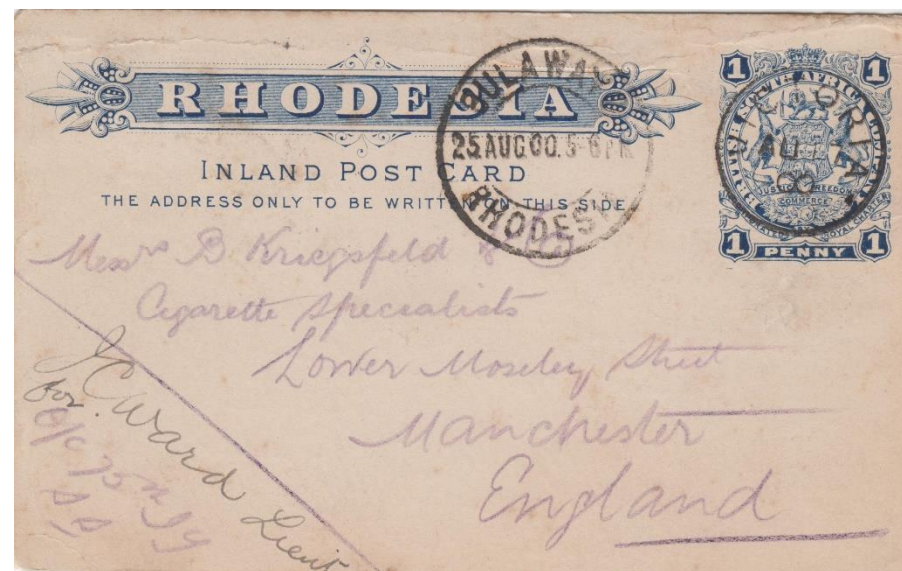 RHODESIA
INLAND POST CARD
THE ADDRESS ONLY TO BE WRITTEN ON THIS SIDE
BULAWAYO
25 AUG 00. 5-6 PM
RHODESIA
1 1
BRITISH SOUTH AFRICA COMPANY
JUSTICE FREEDOM
COMMERCE
ROYAL CHARTER
1 PENNY 1
Messrs B Kriegsfeld & Co
Cigarette Specialists
Lower Moseley Street
Manchester
England
J C Ward Lieut
for
O/C 75th IY